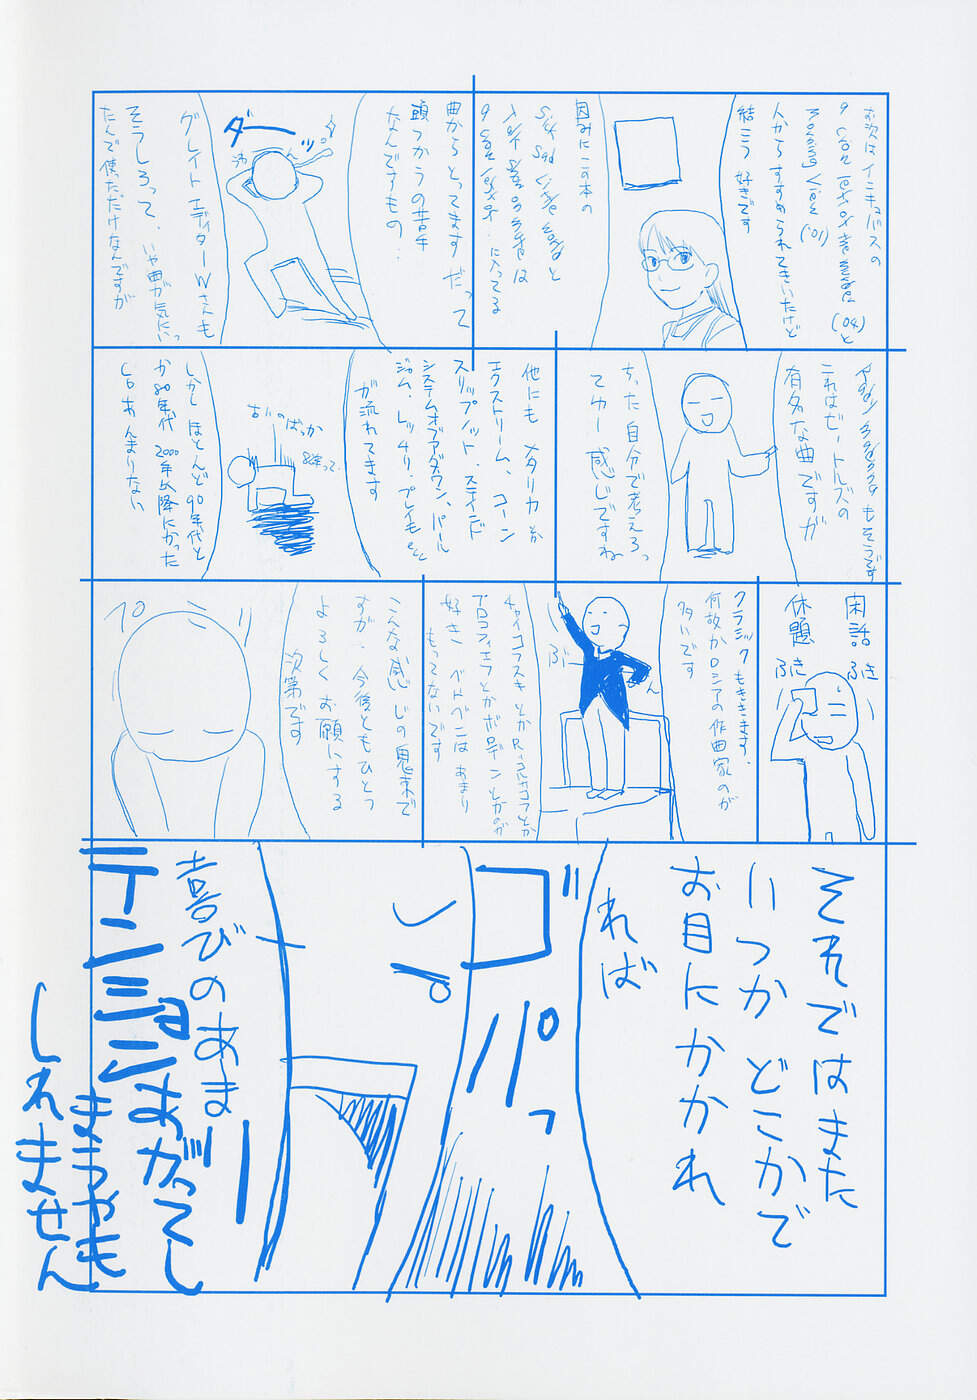 お次はインキュバスの
(04)と
('01)
人からすすめられてきいたけど
結こう好きです
因みにこの本の
sick sad little world と
は
に入ってる
曲からとってます だって
頭っからの苦手
なんですもの…
ダーッ
グレイト エディターWさんも
そうしろって、いや曲が気にいっ
たんで使っただけなんですが
もそうです
これはビートルズの
有名な曲ですが
ちった自分で考えろっ
てゆー感じですね
他にも メタリカとか
エクストリーム、コーン
スリップノット・ステインド
システムオブアダウン、パール
ジャム、レッチリ・プレイもetc
が流れてます
古いのばっか
しかし ほとんど90年代と
か80年代 2000年以降にかった
CDあんまりない
閑話
休題
ふき
ふき
クラシックもききます。
何故かロシアの作曲家のが
多いです
ぶ
ん
チャイコフスキとかR=コルサコフとか
プロコフィエフとかボロディンとかのが
好き ベトベンは あまり
もってないです
こんな感じの鬼束で
すが、今後ともひとつ
よろしくお願いする
次第です
ペコ
それではまた
いつか どこかで
お目にかかれ
れば
ゴ
パッ
喜びのあまり
テンションあがってし
まうやも
しれません